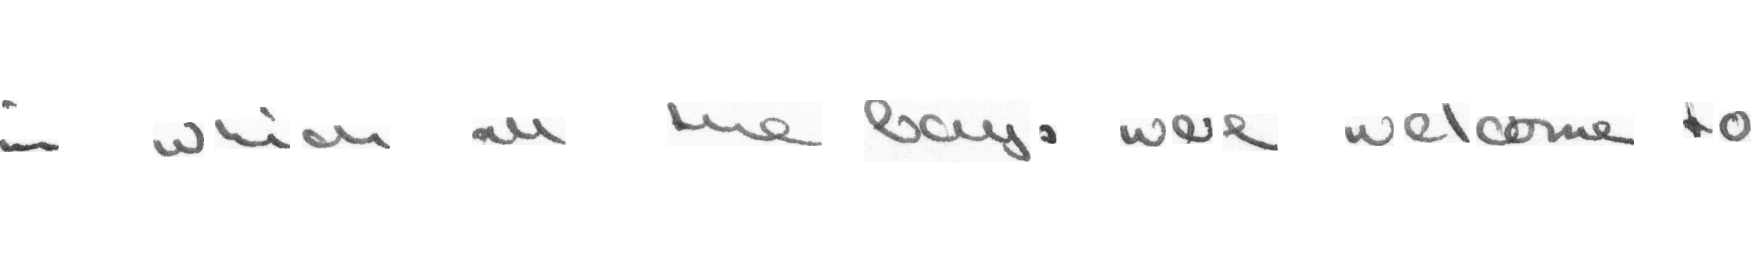 in which all the boys were welcome to